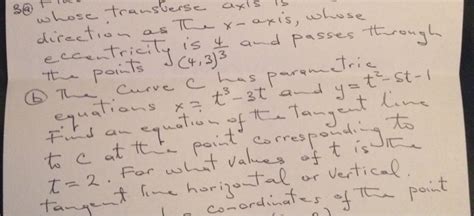 3@
whose transverse axis is
direction as the x-axis, whose
eccentricity is 4/3 and passes through
the points (4,3)
ⓑ The curve C has parametric
equations x = t³-3t and y = t²-5t-1
Find an equation of the tangent line
to C at the point corresponding to
t=2. For what values of t is the
tangent line horizontal or vertical.
coordinates of the point